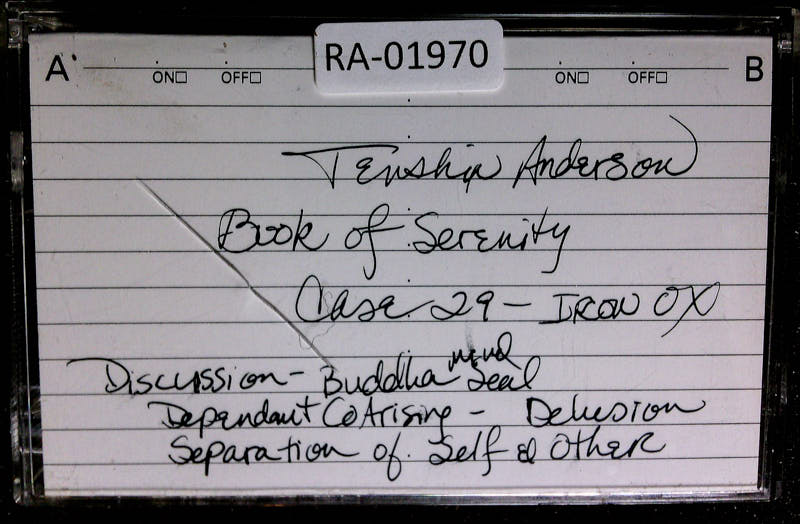 RA-01970
A B
ON OFF ON OFF
Tenshin Anderson
Book of Serenity
Case 29 - IRON OX
Discussion - Buddha mind Seal
Dependant CoArising - Delusion
Separation of Self & Other